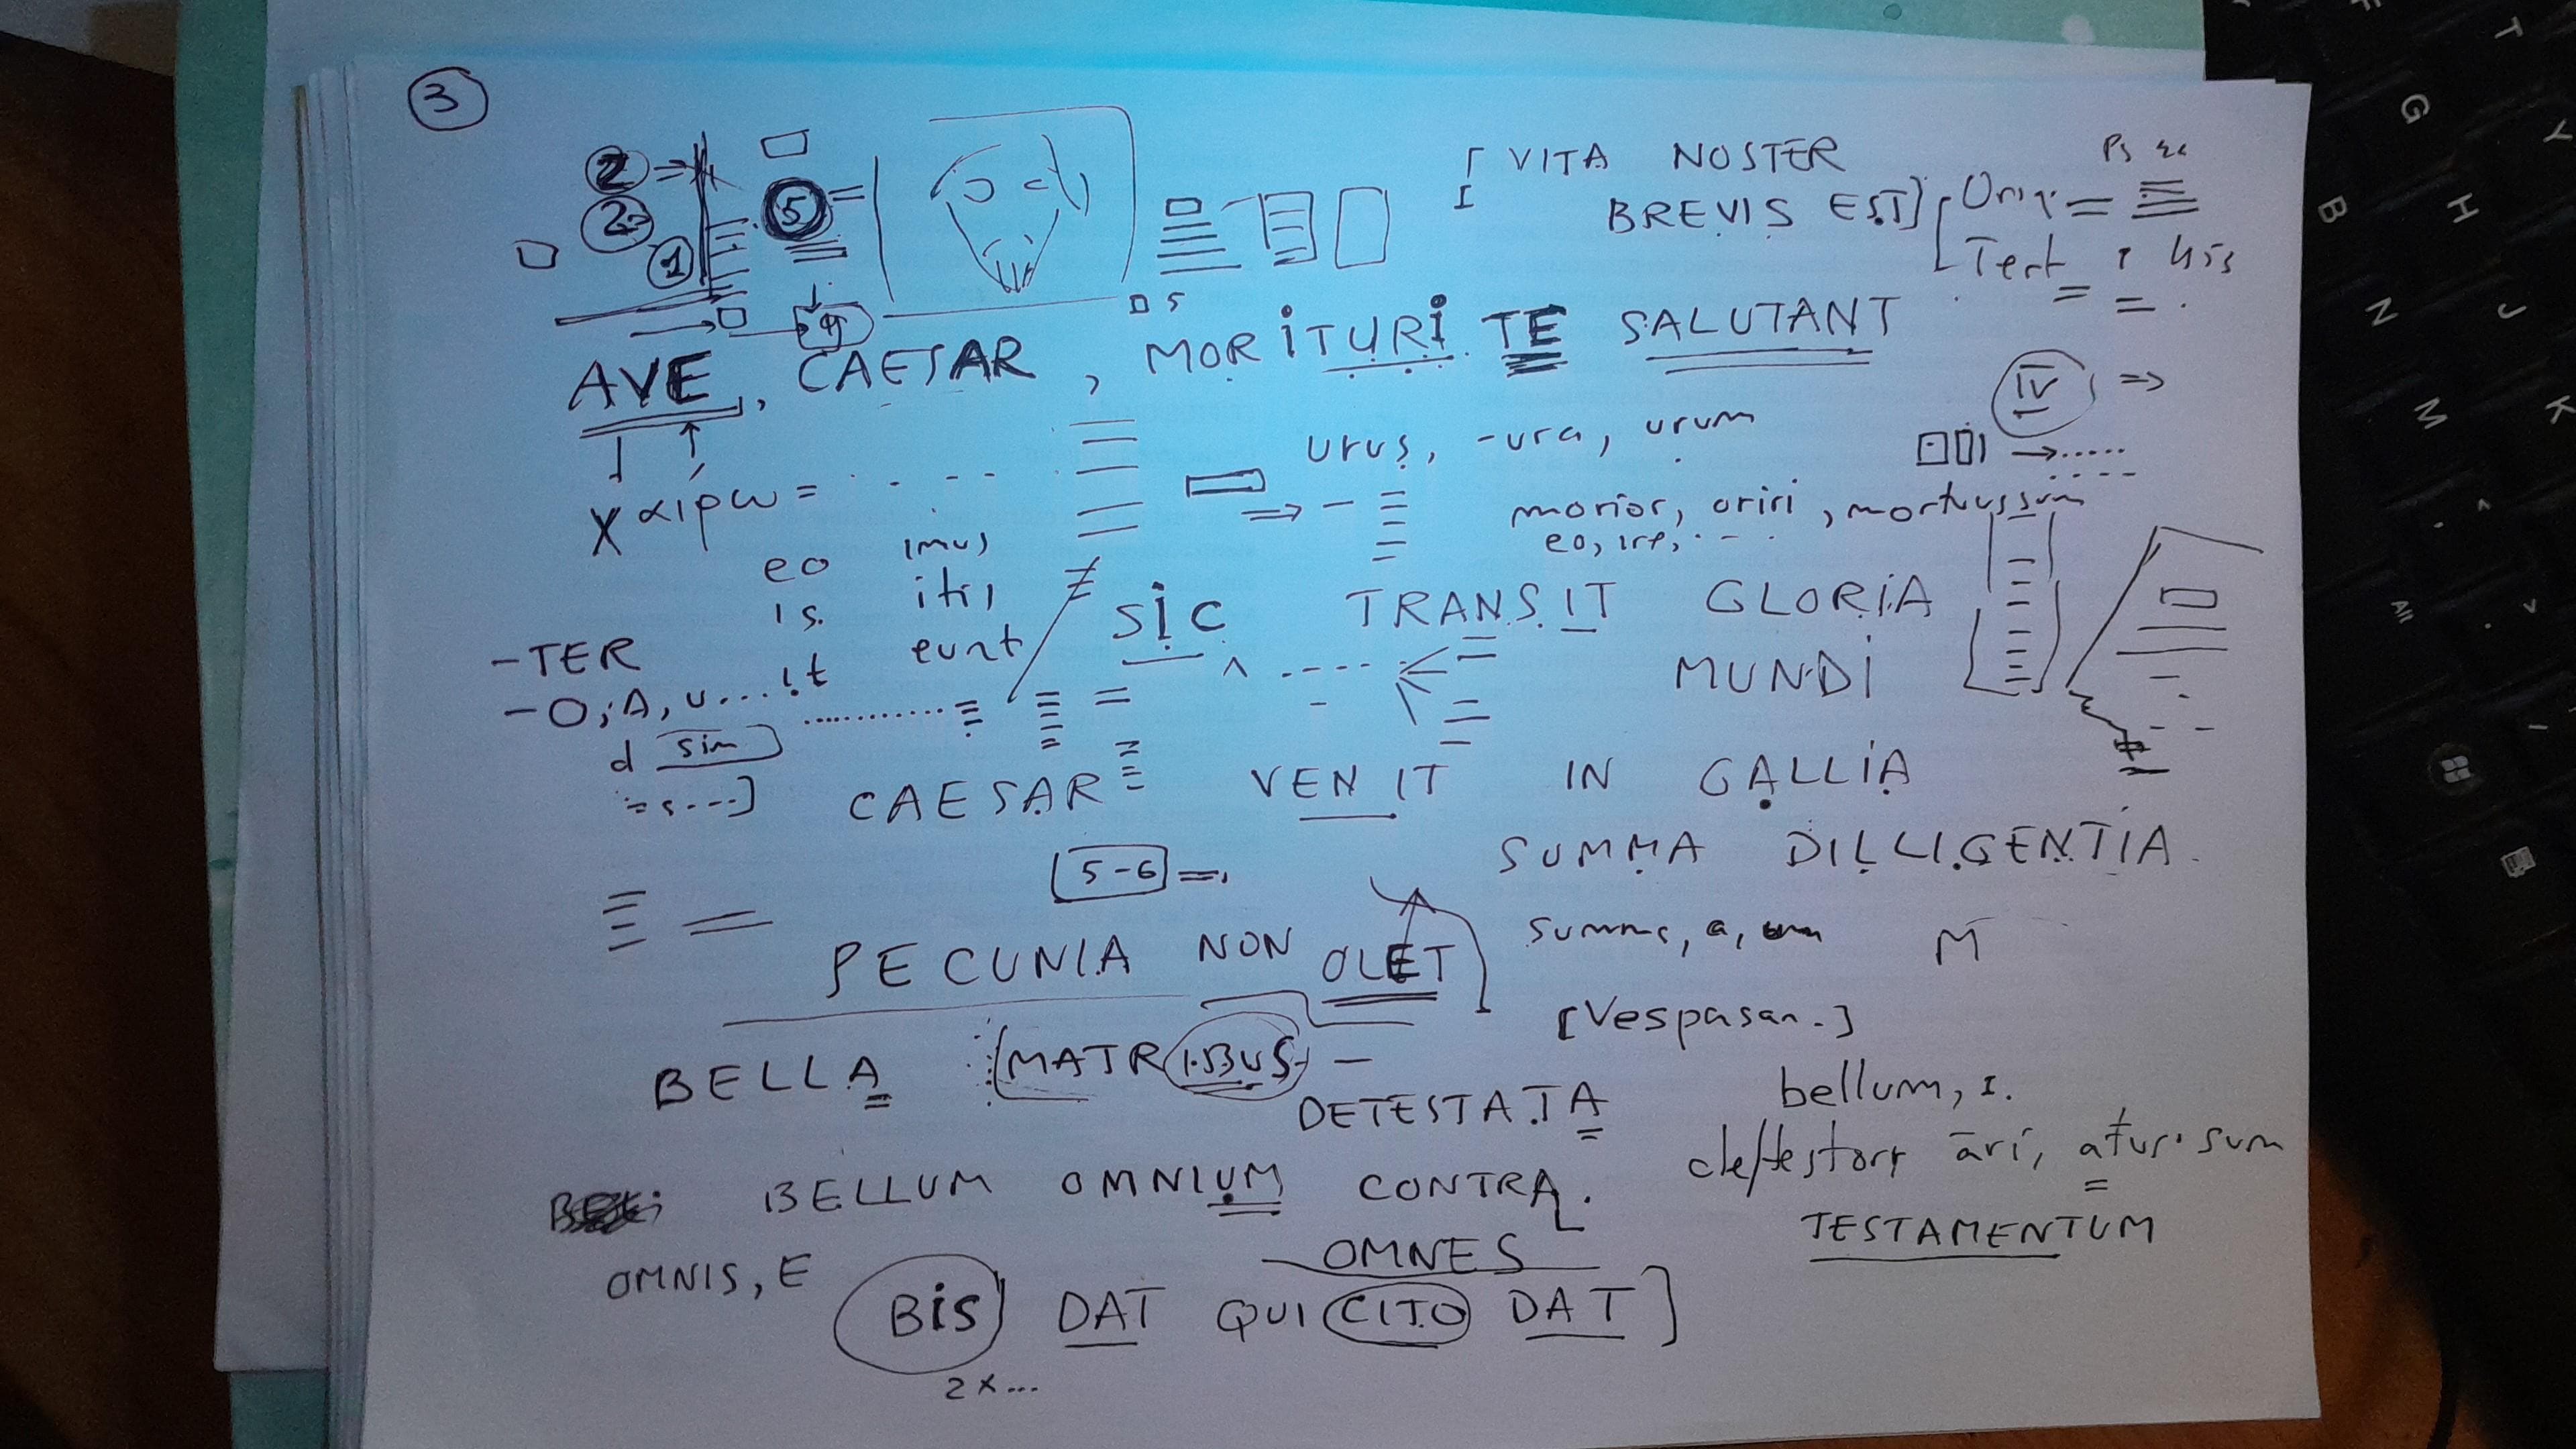 3
2 =
2
1
5 =
5
[ VITA NOSTER
BREVIS EST]
AVE, CAESAR, MORITURI TE SALUTANT
IV =>
urus, -ura, urum
χαιρω =
morior, oriri, mortuus sum
eo, ire,
eo imus
is. itis
it eunt
-TER
-O, A, u...
SIC TRANSIT GLORIA
MUNDI
d sim
CAESAR VENIT IN GALLIA
SUMMA DILLIGENTIA.
5-6 =
PECUNIA NON OLET
a, um M
[Vespasan.]
BELLA MATRIBUS -
DETESTATA
bellum, I.
detestor, āri, atus sum
TESTAMENTUM
BELLUM OMNIUM CONTRA.
OMNES
OMNIS, E
BIS DAT QUI CITO DAT]
2 x ...